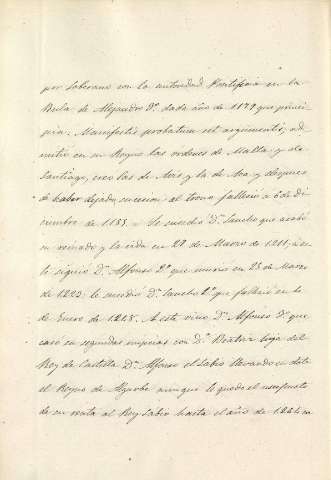 por soberano con la autoridad Pontificia en la
Bula de Alejandro 3º dada año de 1179 que princi-
pia: Manifestis probatum est argumentis; ad-
mitió en su Reyno las ordenes de Malta y de
Santiago, creo las de Avis y la de Ala, y despues
de haber dejado sucesion al trono falleció a 6 de Di-
ciembre de 1185. = Le sucedió Dn. Sancho que acabó
su reinado y la vida en 27 de Marzo de 1211; á es-
te siguio Dn. Alfonso 2º que murio en 25 de Marzo
de 1223; le sucedio Dn. Sancho 2º que falleció en
de Enero de 1248. A este vino Dn. Alfonso 3º que
caso en segundas nupcias con Dª. Beatriz hija del
Rey de Castilla Dn. Alfonso el Sabio llevando en dote
el Reyno de Algarbe aunque le quedo el usufruto
de su renta al Rey Sabio hasta el año de 1264 en